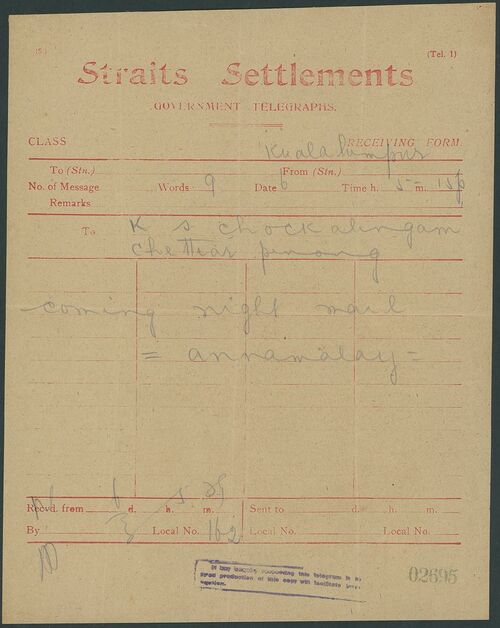 (Tel. 1)
Straits Settlements
GOVERNMENT TELEGRAPHS.
CLASS RECEIVING FORM.
Kuala lumpur
To (Stn.) From (Stn.)
No. of Message Words 9 Date 6 Time h. 5 m. 15p
Remarks
To K S chockalingam
chettiar penang
coming night mail
= annamalay =
Recvd. from d. h. m. Sent to d. h. m.
By Local No. 162 Local No. Local No.
If any enquiry respecting this telegram is
production of this copy will facilitate
02695